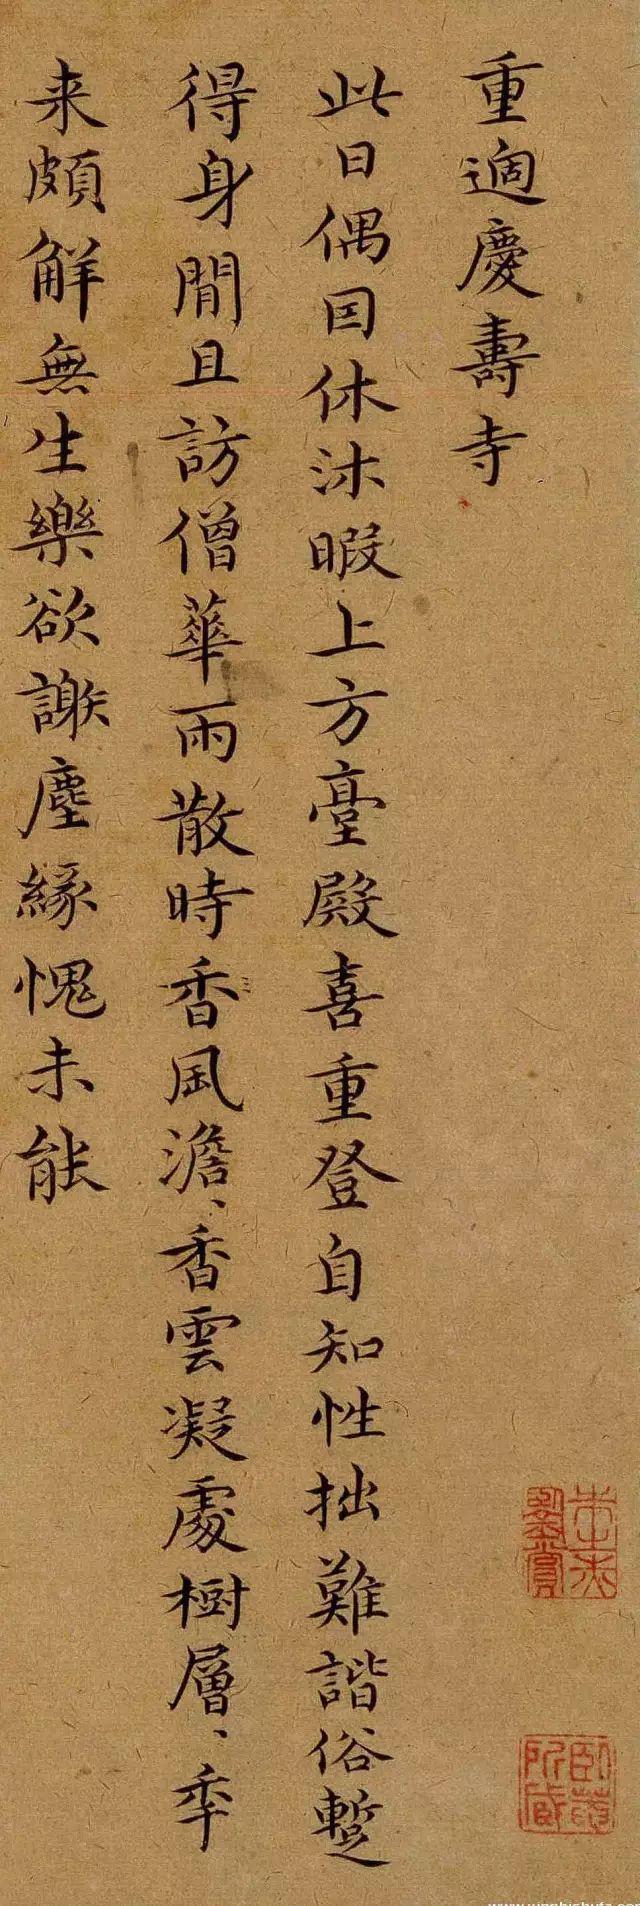 重適慶壽寺
此日偶囙休沐暇上方臺殿喜重登自知性拙難諧俗蹔
得身閒且訪僧華雨散時香風澹、香雲凝處樹層、季
来頗解無生樂欲謝塵緣愧未能
朱之赤鑒賞
卧菴所藏